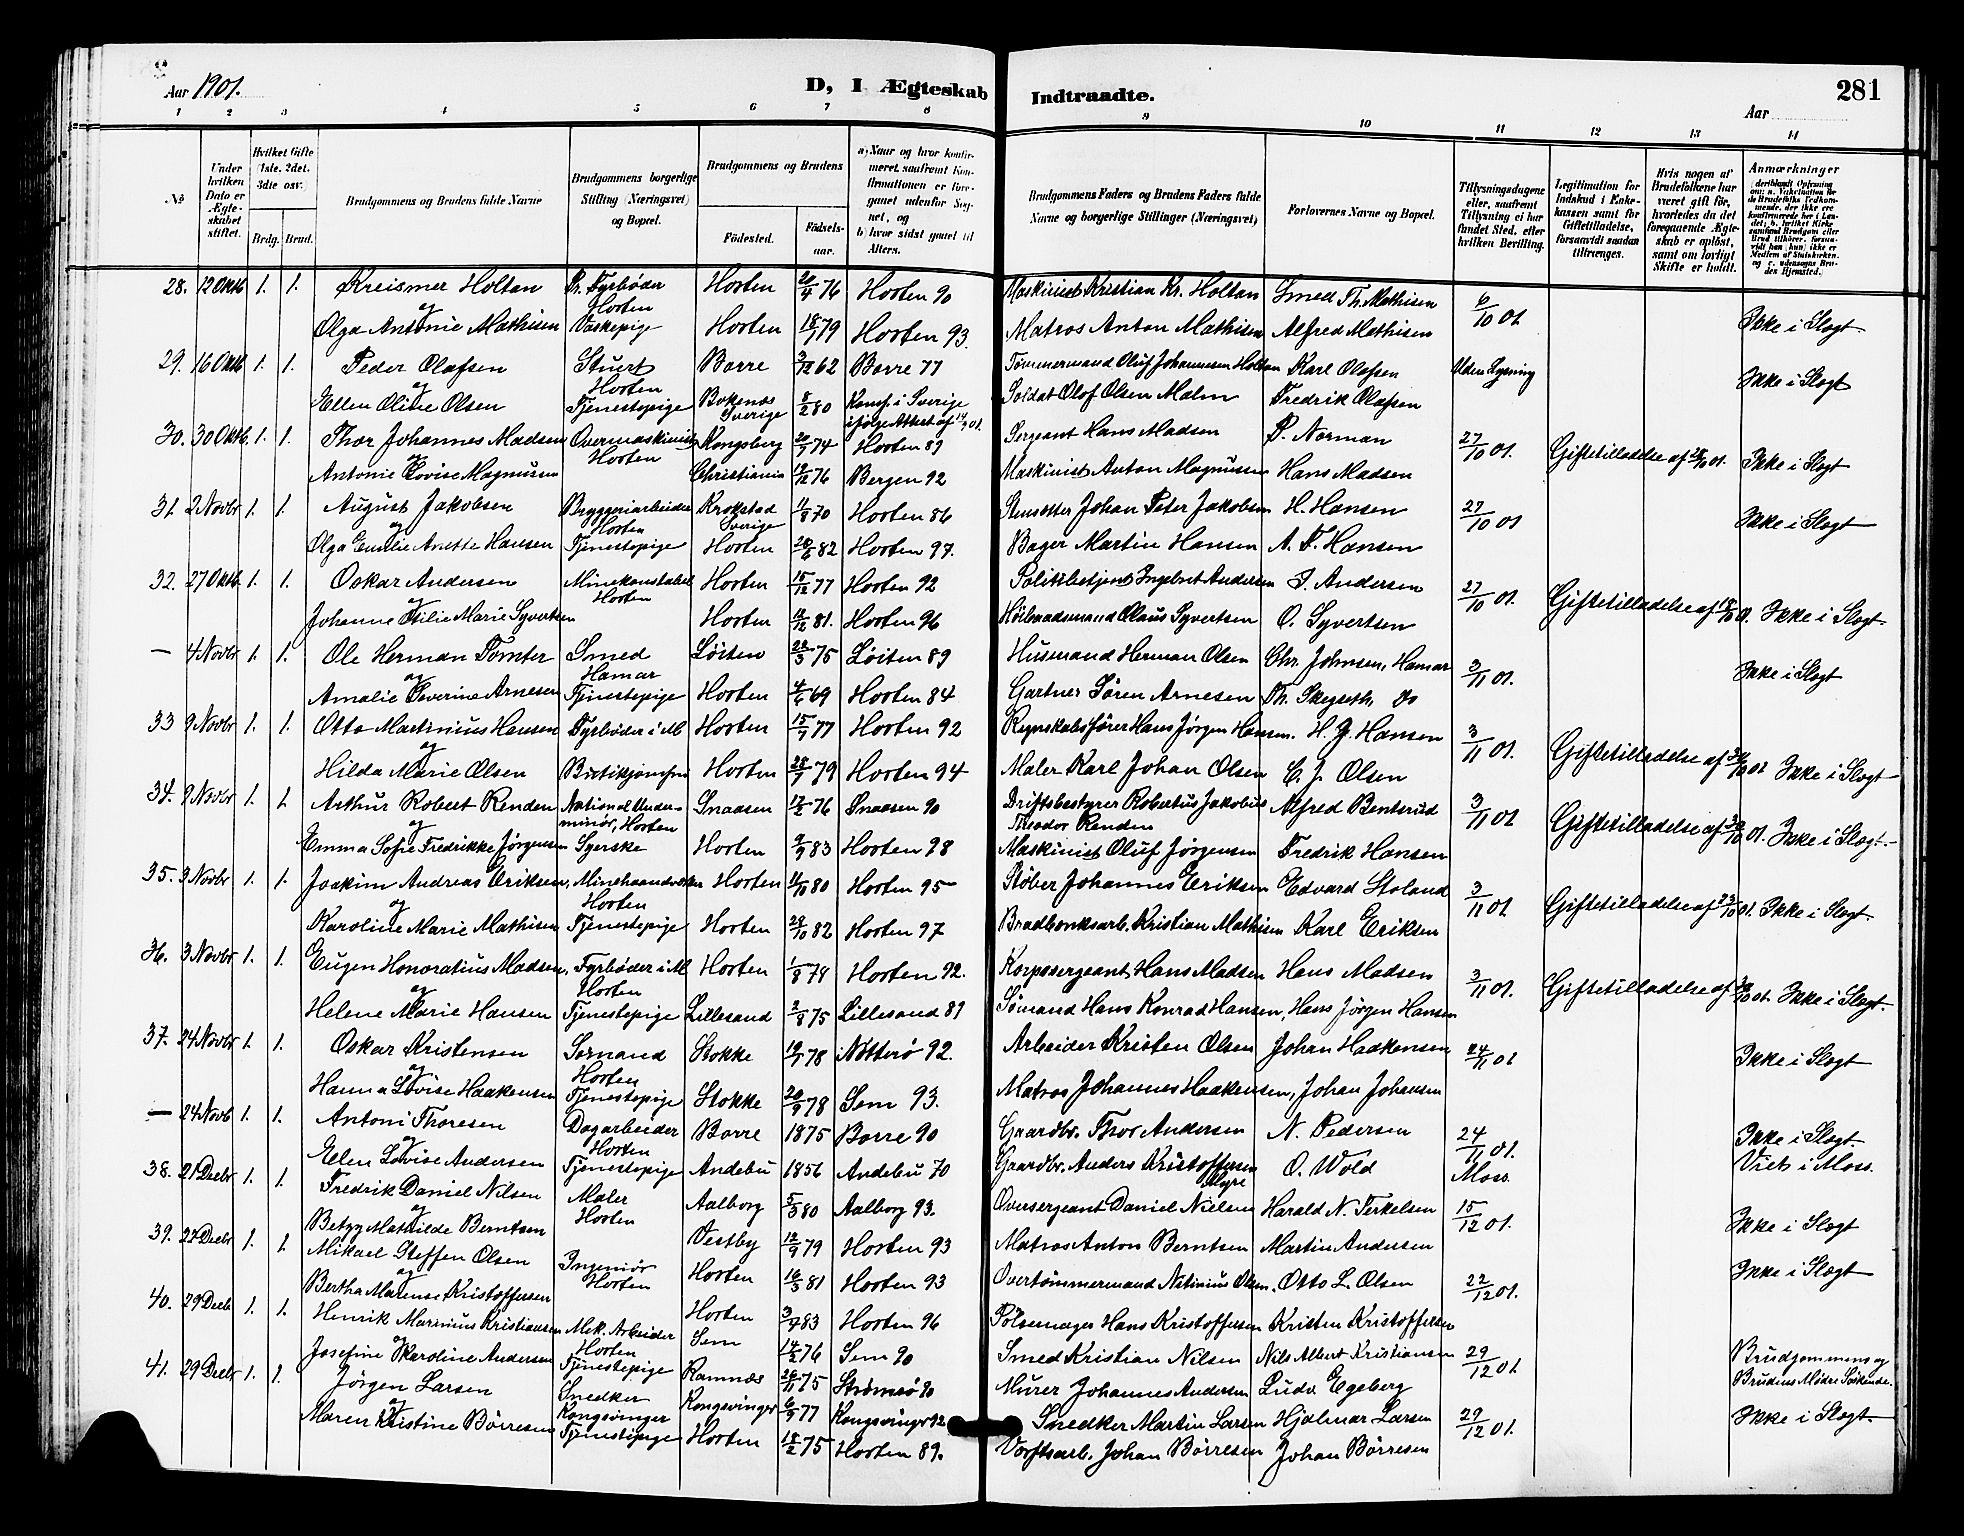 Aar 1901.
D, 1 Ægteskab
Indtraadte.
281
Aar
1 2 3 4 5 6 7 8 9 10 11 12 13 14
No
Under hvilken Dato er Ægteskabet stiftet.
Hvilket Gifte (1ste, 2det, 3die osv.)
Brdg. Brud.
Brudgommens og Brudens fulde Navne
Brudgommens borgerlige Stilling (Næringsvei) og Bopæl.
Brudgommens og Brudens
Födested.
Födsels-aar.
a) Naar og hvor konfirmeret, saafremt Konfirmationen er foregaaet udenfor Sognet, og
b) hvor sidst gaaet til Alters.
Brudgommens Faders og Brudens Faders fulde Navne og borgerlige Stillinger (Næringsvei)
Forlovernes Navne og Bopæl.
Tillysningsdagene eller, saafremt Tillysning ei har fundet Sted, efter hvilken Bevilling.
Legitimation for Indskud i Enkekassen samt for Giftetilladelse, forsaavidt saadan tiltrænges.
Hvis nogen af Brudefolkene har været gift før, hvorledes da det foregaaende Ægteskab er opløst, samt om lovligt Skifte er holdt.
Anmærkninger
28. 12 Oktb 1. 1. Kreismer Holtan Pr. Fyrbøder Horten Horten 20/4 76 Horten 90 Maskinist Kristian Kr. Holtan Smed Th. Mathisen 6/10 01.
og
Olga Antonie Mathisen Vaskepige Horten 18/7 79 Horten 93. Matros Anton Mathisen Alfred Mathisen Ikke i Slægt
29. 16 Oktb 1. 1. Peder Olafsen Stuert Horten Borre 3/12 62 Borre 77 Tømmermand Oluf Johannesen Holtan Karl Olafsen Uden Lysning
og
Ellen Oline Olsen Tjenestepige Bokenæs Sverige 8/2 80 Konf. i Sverige ifølge Attest af Soldat Olof Olsen Malm Fredrik Olafsen Ikke i Slægt
30. 30 Oktb. 1. 1. Thor Johannes Madsen Overmaskinist Horten Kongsberg 20/7 74 Horten 89 Sergeant Hans Madsen P. Norman 27/10 01. Giftetilladelse af 28/10 01.
og
Antonie Lovise Magnusen Christiania 12/12 76 Bergen 92 Maskinist Anton Magnussen Hans Madsen Ikke i Slægt
31. 2 Novbr 1. 1. August Jakobsen Bryggeriarbeider Horten Krokstad Sverige 11/8 70 Horten 86 Stensetter Johan Peter Jakobsen H. Hansen 27/10 01
og
Olga Emilie Anette Hansen Tjenestepige Horten 20/6 82 Horten 97. Bager Martin Hansen A. F. Hansen Ikke i Slægt
32. 27 Oktb. 1. 1. Oskar Andersen Minekonstabel Horten Horten 15/12 77 Horten 92 Politibetjent Ingebret Andersen I. Andersen 27/10 01. Giftetilladelse af 18/10 01.
og
Johanne Otilie Marie Syvertsen Horten 12/12 81. Horten 96 Høibaadsmand Olaus Syvertsen O. Syvertsen Ikke i Slægt.
— 4 Novbr 1. 1. Ole Herman Tomter Smed Hamar Løiten 22/3 75 Løiten 89 Husmand Herman Olsen Chr. Johnsen, Hamar 3/11 01.
og
Amalie Severine Arnesen Tjenestepige Horten 4/6 69 Horten 84 Gartner Søren Arnesen Th. Skegseth, do Ikke i Slægt
33 9 Novbr 1. 1. Otto Martinius Hansen Fyrbøder i M Horten 15/7 77 Horten 92 Regnskabsfører Hans Jørgen Hansen. H. J. Hansen 3/11 01.
og
Hilda Marie Olsen Butikjomfru Horten 28/7 79 Horten 94 Maler Karl Johan Olsen C. J. Olsen Giftetilladelse af 10 01 Ikke i Slægt
34. 9 Novbr 1. 1. Arthur Robert Renden National Underminör, Horten Snaasen 17/2 76 Snaasen 90 Driftsbestyrer Robertus Jakobus Theodor Renden Alfred Bentsrud 3/11 01
og
Emma Sofie Fredrikke Jørgensen Syerske Horten 2/9 83 Horten 98 Maskinist Oluf Jørgensen Fredrik Hansen Giftetilladelse af 10 01. Ikke i Slægt.
35. 3 Novbr 1. 1. Joakim Andreas Eriksen, Minehaandværker Horten Horten 11/11 80 Horten 95 Støber Johannes Eriksen Edvard Stoland 3/11 01.
og
Karoline Marie Mathisen Tjenestepige Horten 29/10 82 Horten 97 Bradbænksarb. Kristian Mathisen Karl Eriksen Giftetilladelse af 23/10 01. Ikke i Slægt.
36. 3 Novbr 1. 1. Eugen Honoratius Madsen, Fyrbøder i M Horten Horten 1/8 78 Horten 92. Korpssergeant Hans Madsen Hans Madsen 3/11 01.
og
Helene Marie Hansen Tjenestepige Lillesand 2/8 75 Lillesand 89 Sømand Hans Konrad Hansen, Hans Jørgen Hansen Giftetilladelse af 10 01. Ikke i Slægt.
37. 24 Novbr 1. 1. Oskar Kristensen Sømand Horten Stokke 19/7 78 Nøtterø 92. Arbeider Kristen Olsen Johan Haakensen 24/11 01
og
Hanna Lovise Haakensen Tjenestepige Stokke 20/9 78 Sem 93. Matros Johannes Haakensen, Johan Johansen Ikke i Slægt
— 24 Novb 1. 1. Anton Thoresen Dagarbeider Horten Borre 1875 Borre 90 Gaardbr. Thor Andersen N. Pedersen 24/11 01. Moss. Ikke i Slægt. Viet i Moss.
og
Ellen Lovise Andersen Tjenestepige Andebu 1856 Andebu 70 Gaardbr. Anders Kristoffersen Myre O. Wold
38. 21 Decbr 1. 1. Fredrik Daniel Nilsen Maler Horten Aalborg 5/5 80 Aalborg 93. Oversergeant Daniel Nielsen Harald N. Terkelsen 15/12 01.
og
Betzy Mathilde Berntsen Vestby 12/9 79 Horten 93 Matros Anton Berntsen Martin Andersen Ikke i Slægt
39. 27 Decbr 1. 1. Mikael Steffen Olsen Ingeniør Horten Horten 16/3 81 Horten 93 Overtömmermand Nitinius Olsen. Otto L. Olsen 22/12 01. Ikke i Slægt
og
Bertha Marense Kristoffersen Horten 3/7 83 Horten 96 Pølsemager Hans Kristoffersen Kristen Kristoffersen
40. 29 Decb 1. 1. Henrik Marinius Kristiansen Mek. Arbeider Horten Sem 14/2 76 Sem 90 Smed Kristian Nilsen Nils Albert Kristiansen 29/12 01. Brudgommens og Brudens Mødre Søskende.
og
Josefine Karoline Andersen Tjenestepige Ramnæs 26/11 75 Strømsø 90 Murer Johannes Andersen Ludv. Egeberg
41. 29 Decbr 1. 1. Jörgen Larsen Snedker Kongsvinger Kongsvinger 6/7 77 Kongsvinger 92 Snedker Martin Larsen Hjalmar Larsen 29/12 01. Ikke i Slægt.
og
Maren Kristine Börresen Tjenestepige Horten 18/2 75 Horten 89. Værftsarb. Johan Börresen Johan Börresen